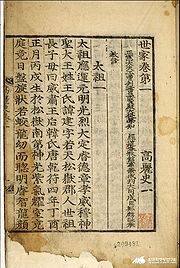 世家卷第一 高麗史一
教修
太祖一
太祖應運元明光烈大定睿德章孝威穆神
聖大王姓王氏諱建字若天松嶽郡人世祖
長子母曰威肅王后韓氏唐乾符四年丁酉
正月丙戌生於松嶽南第神光紫氣耀室充
庭竟日盤旋狀若蛟龍幼而聰明睿智龍顔